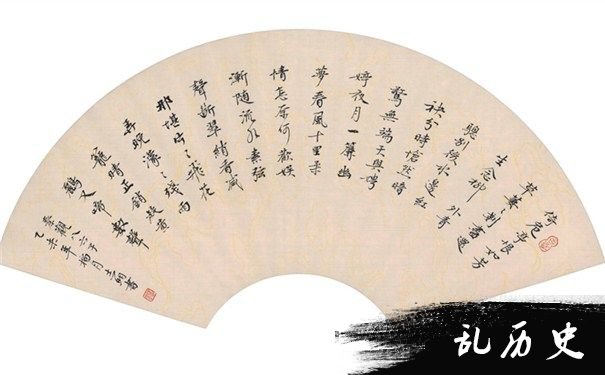 倚危亭恨如芳
草萋剗盡還
生念柳外青
驄別後水邊紅
袂分時愴然暗
驚無端天與娉
婷夜月一簾幽
夢春風十里柔
情怎奈何歡娛
漸随流水素弦
聲斷翠綃香減
那堪片々飛花
弄晚濛々殘雨
籠晴正銷凝黃
鸝又啼數聲
秦觀八六子
乙未年 月 書
乱历史